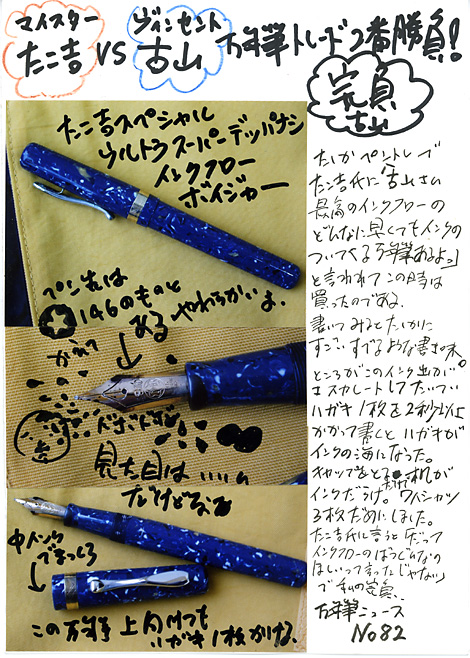 マイスター
たこ吉
VS
ヴィンセント
古山
万年筆トレード2番勝負!
完負
古山
たこ吉スペシャル
ウルトラスーパーデッパナシ
インクフロー
ボイジャー
ペン先は
146のものと
やわらかいよ。
ドボドボ
見た目はいい
だけどなぁ
中パンク
でまっくろ
この万年筆
ハガキ1枚かけな
たしかペントレで
たこ吉氏に「古山さん
最高のインクフローの
どんなに早くてもインクの
ついてくる万年筆あるよっ」
と言われてこの時は
買ったのである。
書いてみるとたしかに
すごいすべるような書き味。
ところがこのインク出かが
エスカレートしてだいたい
ハガキ1枚を2秒以上
かかって書くとハガキが
インクの海になった。
キャップをとると机が
インクだらけ。ワイシャツ
3枚だめにしました。
たこ吉氏に言うと「だって
インクフローのほうふなの
ほしいって言ったじゃない」
で私の完負。
万年筆ニュース
No82